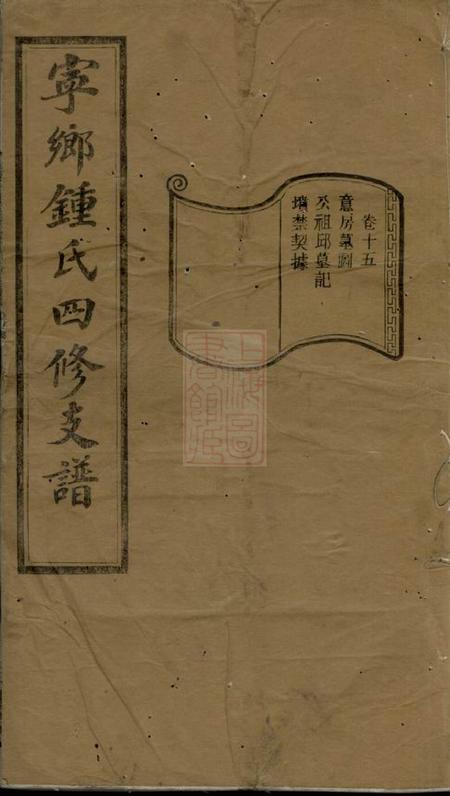 寧鄉鍾氏四修支譜
卷十五
意房墓圖
公祖邱墓記
墳禁契據
上海圖書館藏